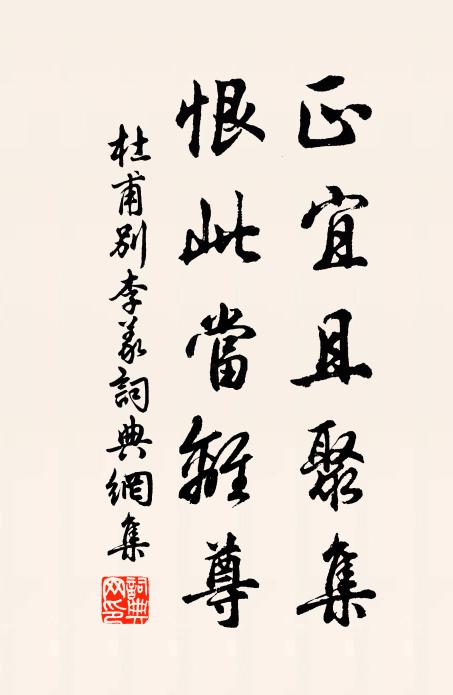 正宜且聚集
恨此當離尊
杜甫別李義詞典網集
詞典網印